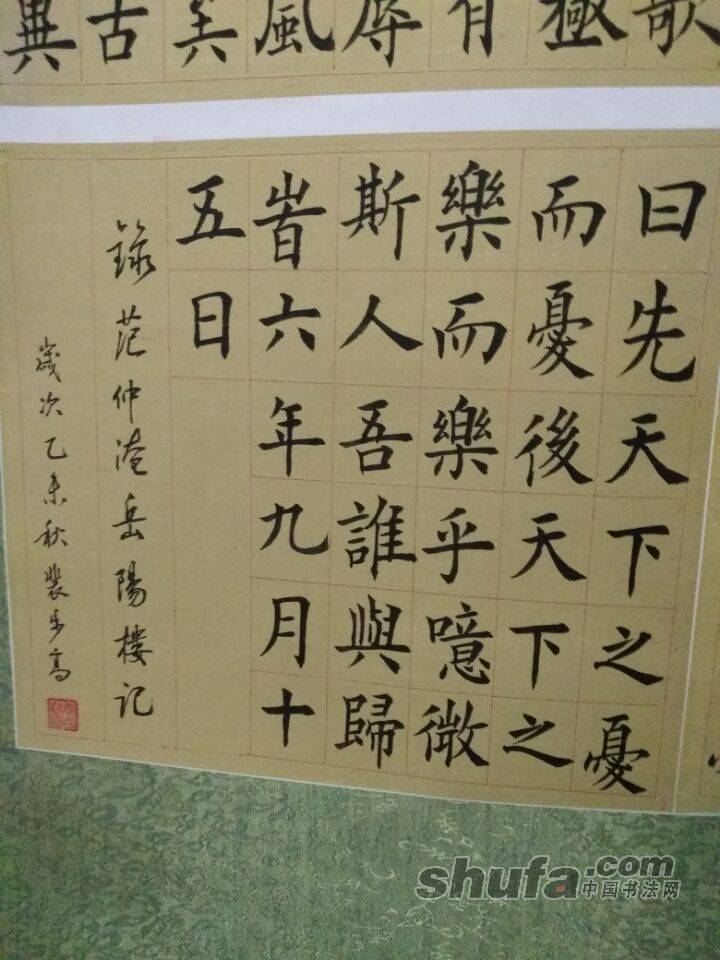 歌
極
有
辱
風
矣
古
異
曰先天下之憂
而憂後天下之
樂而樂乎噫微
斯人吾誰與歸
旹六年九月十
五日
錄范仲淹岳陽樓記
歲次乙未秋裴步高
shufa.com
中国书法网